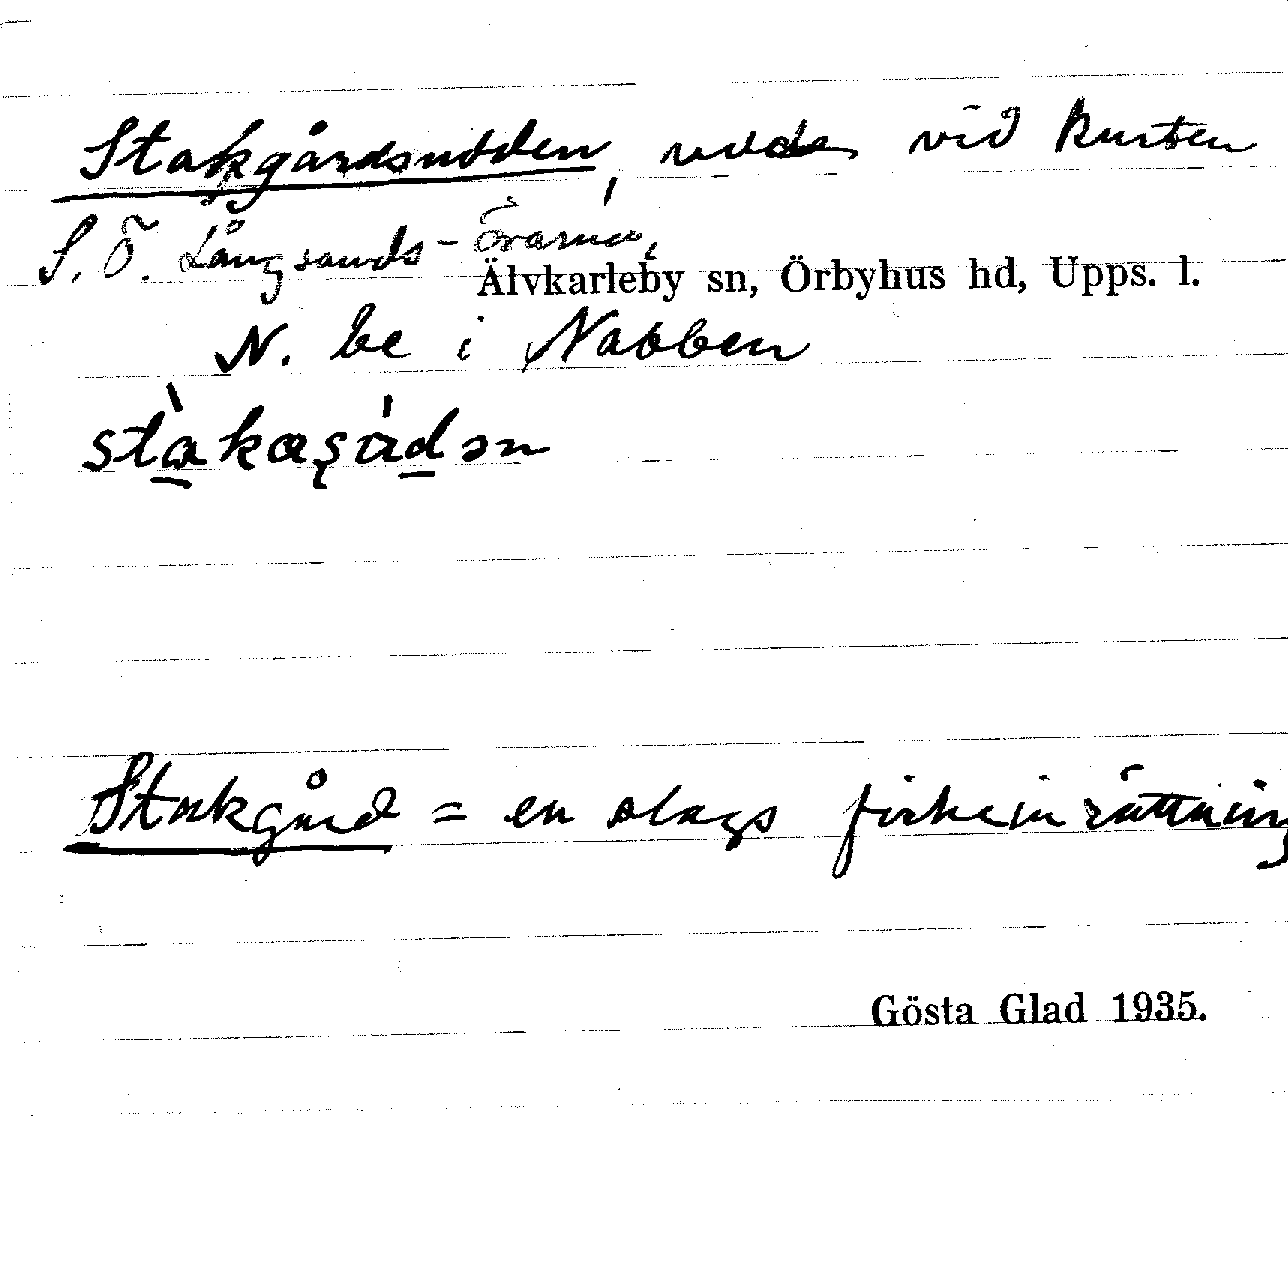 Stakgårdsudden, udde vid kusten
S. Ö. Långsands-Örarna,
Älvkarleby sn, Örbyhus hd, Upps. l.
N. be i Nabben
Stakgård = en slags fiskeinrättning
Gösta Glad 1935.